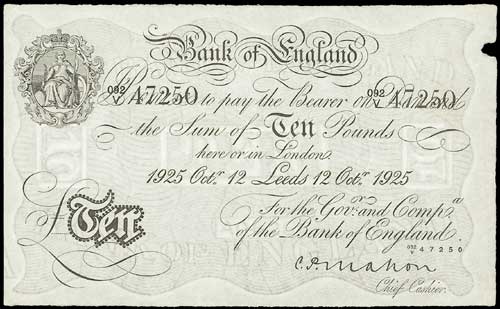 Bank of England
092/V 47250 to pay the Bearer on Demand 092/V 47250
the Sum of Ten Pounds
here or in London
1925 Octr. 12 Leeds 12 Octr. 1925
For the Govr. and Compa.
of the Bank of England.
092/V 47250
£Ten
C.P. Mahon
Chief Cashier.